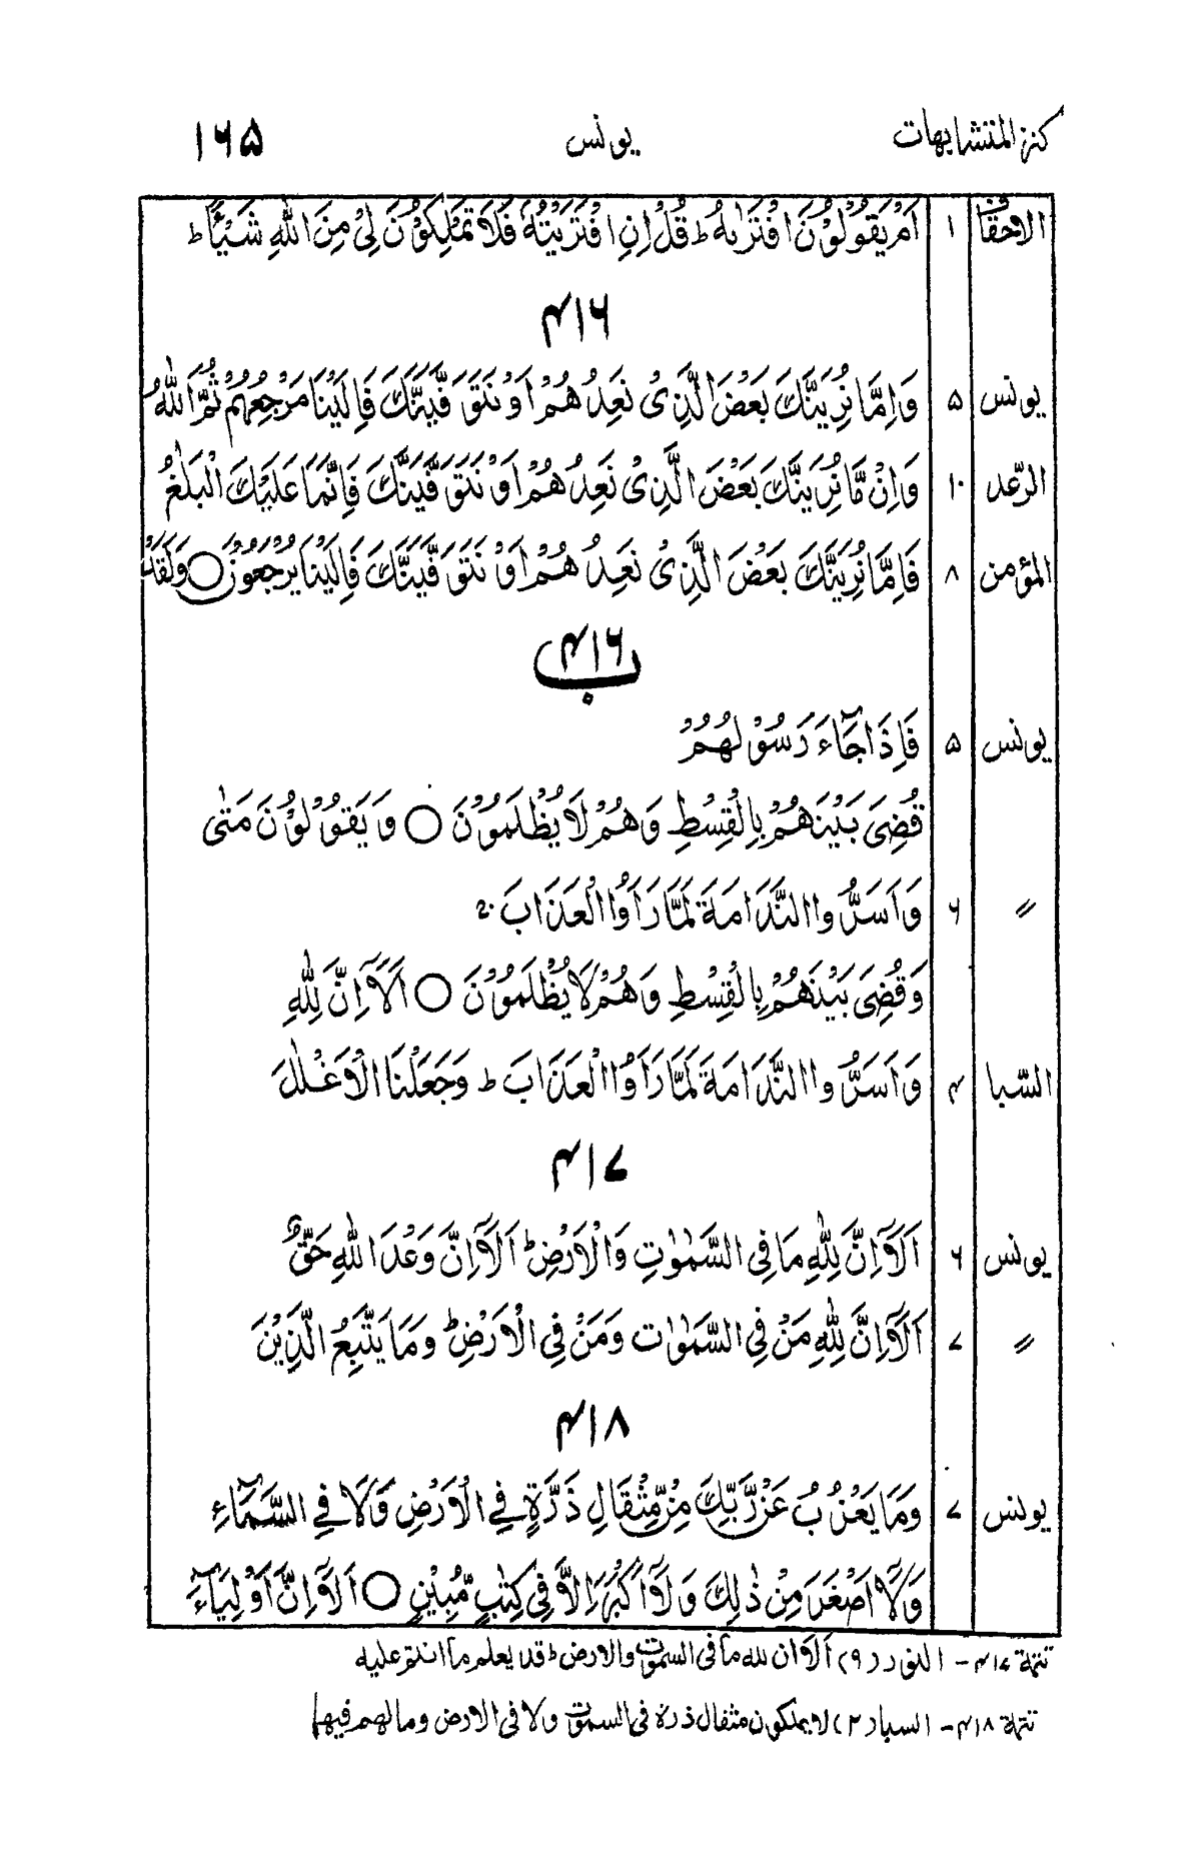 كنز المتشابهات يونس ۱۶۵
الاحقاف ۱ اَمْ يَقُوْلُوْنَ افْتَرٰىهُ ؕ قُلْ اِنِ افْتَرَيْتُهٗ فَلَا تَمْلِكُوْنَ لِيْ مِنَ اللّٰهِ شَيْـًٔا ؕ
۴۱۶
يونس ۵ وَاِمَّا نُرِيَنَّكَ بَعْضَ الَّذِيْ نَعِدُهُمْ اَوْ نَتَوَفَّيَنَّكَ فَاِلَيْنَا مَرْجِعُهُمْ ثُمَّ اللّٰهُ
الرّعد ۱۰ وَاِنْ مَّا نُرِيَنَّكَ بَعْضَ الَّذِيْ نَعِدُهُمْ اَوْ نَتَوَفَّيَنَّكَ فَاِنَّمَا عَلَيْكَ الْبَلٰغُ
المؤمن ۸ فَاِمَّا نُرِيَنَّكَ بَعْضَ الَّذِيْ نَعِدُهُمْ اَوْ نَتَوَفَّيَنَّكَ فَاِلَيْنَا يُرْجَعُوْنَ ○ وَلَقَدْ
۴۱۶ ب
يونس ۵ فَاِذَا جَآءَ رَسُوْلُهُمْ
قُضِيَ بَيْنَهُمْ بِالْقِسْطِ وَهُمْ لَا يُظْلَمُوْنَ ○ وَيَقُوْلُوْنَ مَتٰى
〃 ۶ وَاَسَرُّوا النَّدَامَةَ لَمَّا رَاَوُا الْعَذَابَ ۚ
وَقُضِيَ بَيْنَهُمْ بِالْقِسْطِ وَهُمْ لَا يُظْلَمُوْنَ ○ اَلَآ اِنَّ لِلّٰهِ
السّبا ۴ وَاَسَرُّوا النَّدَامَةَ لَمَّا رَاَوُا الْعَذَابَ ؕ وَجَعَلْنَا الْاَغْلٰلَ
۴۱۷
يونس ۶ اَلَآ اِنَّ لِلّٰهِ مَا فِي السَّمٰوٰتِ وَالْاَرْضِ ؕ اَلَآ اِنَّ وَعْدَ اللّٰهِ حَقٌّ
〃 ۷ اَلَآ اِنَّ لِلّٰهِ مَنْ فِي السَّمٰوٰت وَمَنْ فِي الْاَرْضِ ؕ وَمَا يَتَّبِعُ الَّذِيْنَ
۴۱۸
يونس ۷ وَمَا يَعْزُبُ عَنْ رَّبِّكَ مِنْ مِّثْقَالِ ذَرَّةٍ فِي الْاَرْضِ وَلَا فِي السَّمَآءِ
وَلَآ اَصْغَرَ مِنْ ذٰلِكَ وَلَآ اَكْبَرَ اِلَّا فِيْ كِتٰبٍ مُّبِيْنٍ ○ اَلَآ اِنَّ اَوْلِيَآءَ
تتمة ۴۱۷ - النور (۹) اَلَآ ان لله ما فى السمٰوٰت والارض ؕ قد يعلم ما انتم عليه
تتمة ۴۱۸ - السبا (۳) لا يملكون مثقال ذرة فى السمٰوٰت ولا فى الارض وما لهم فيهما